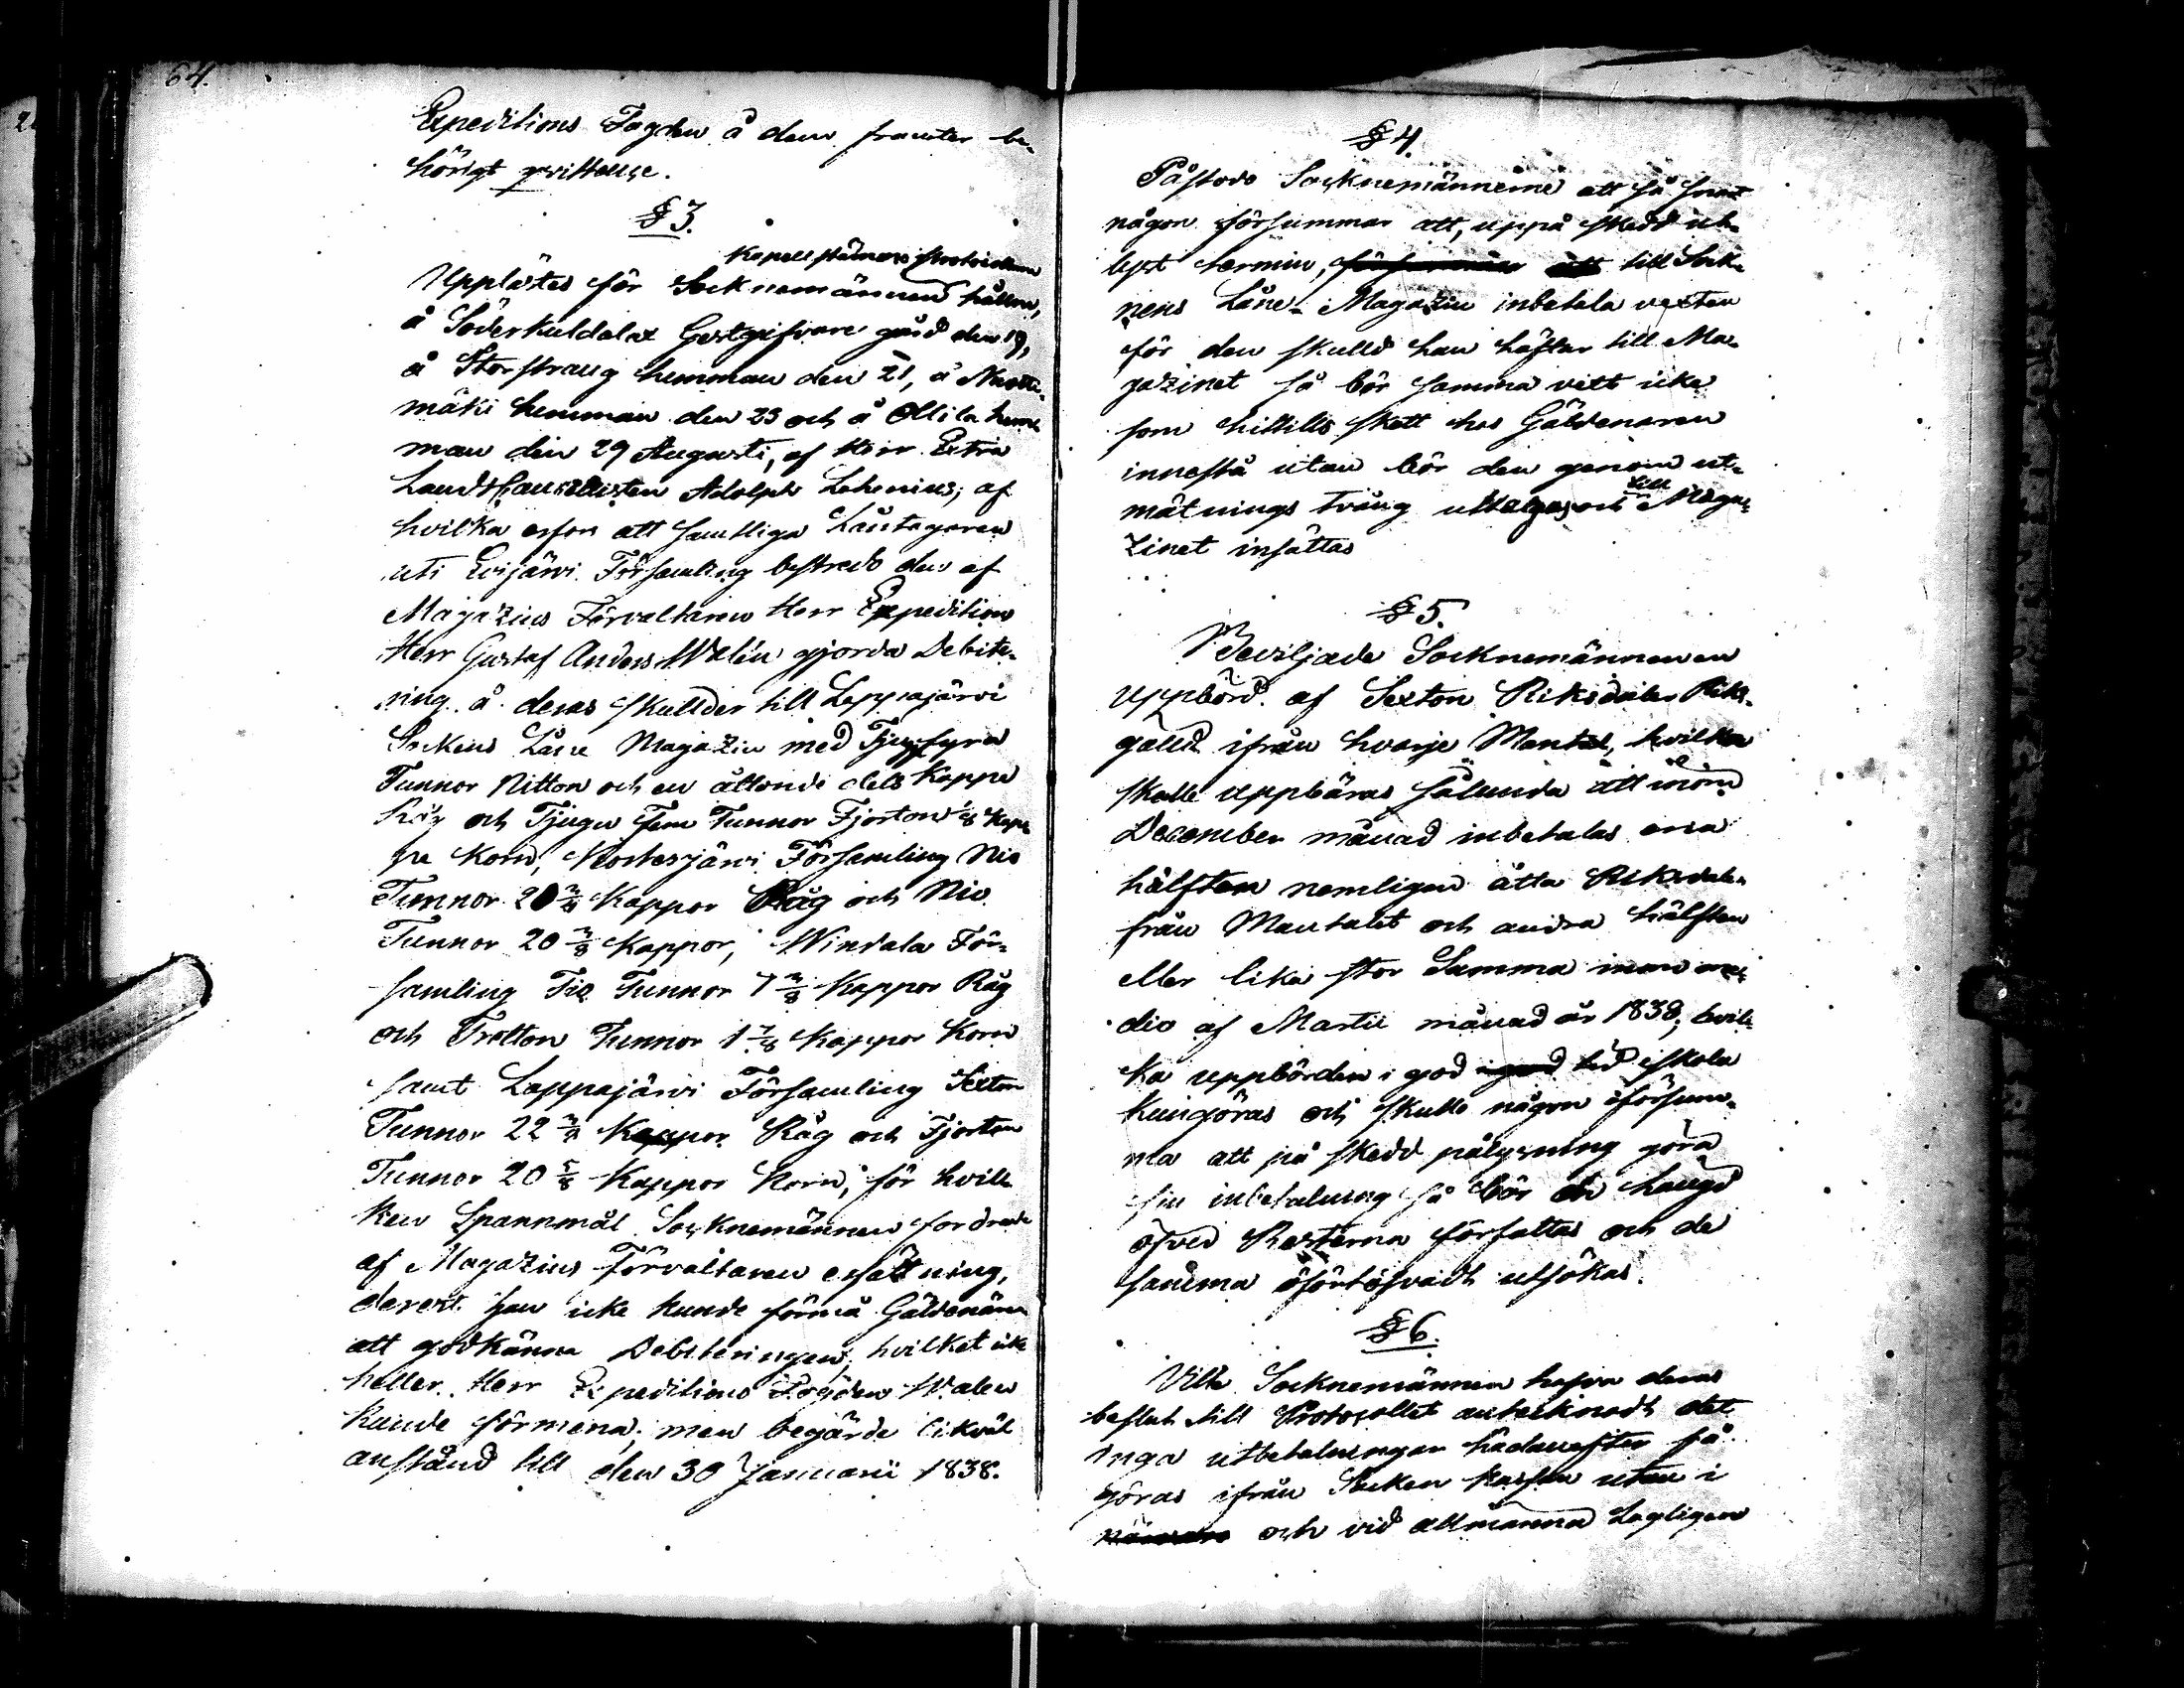 64.
Expeditions Fogden å dem framter be-
hörigt qvittense.
§ 3.
Kapellstämmas protocollerna
Upplästes för Socknemännen hållna,
å Söderkuldalax Gestgifvare gård den 19,
å Storstraug hemman den 21, å
mäki hemman den 23 och å Ollila hem-
man den 29 Augusti, af Herr Extra
Landt Cancellisten Adolph Lehenius; af
hvilka erfors att samtliga Låntagaren
uti Evijärvi Församling bestredo den af
Magazins Förvaltaren Herr Expeditions
Herr Gustaf Anders Walén gjorda Debite-
ring å deras skullder till Lappajärvi
Sockens Låne Magazin med Tjugufyra
Tunnor Nitton och en åttonde dels Kappe
Råg och Tjugu fem Tunnor Fjorton 1/8 Kap-
pe Korn, Kortesjärvi Församling Nio
Tunnor 20 3/8 Kappor Råg och Nio
Tunnor 20 3/8 Kappor, Windala För-
samling Tio Tunnor 7 3/8 Kappor Råg
och Tretton Tunnor 1 7/8 Kappor Korn
samt Lappajärvi Församling Sexton
Tunnor 22 3/8 Kappor Råg och Fjorton
Tunnor 20 5/8 Kappor Korn, för hvil-
ken Spannmål Socknemännen fordrade
af Magazins Förvaltaren ersättning,
derest han icke kunde förmå Gäldenärn
att godkänna Debiteringen, hvilket icke
heller Herr Expeditions Fogden Walen
kunde förmena; men begärde likväl
anstånd till den 30 Januarii 1838.
§ 4.
Påstodo Socknemännerne att så snart
någon försummar att, uppå skedd ut-
lyst termin, till Sock-
nens Låne-Magazin inbetala vexten
för den skulld han häftar till Ma-
gazinet så bör samma vext icke
som hittills skett hos Gäldenaren
innestå utan bör den genom ut-
mätnings tvång uttagas och till Maga-
zinet insättas
§ 5.
Beviljade Socknemännen en
uppbörd af Sexton Riksdaler Riks-
gälld ifrån hvarje Mantal, hvilka
skulle uppbäras sålunda att inom
December månad inbetalas ena
hälften nemligen åtta Riksdaler
från Mantalet och andra hälften
eller lika stor Summa inom me-
dio af Martii månad år 1838; hvil-
ka uppbörden i god tid skola
kungöras och skulle någon försum-
ma att på skedd pålysning göra
sin inbetalning så bör en längd
öfver Resterna författas och de
samma oförtöfvadt utsökas.
§ 6.
Ville Socknemännen hafva deras
beslut till Protocollet antecknadt det
inga utbetalningar hädanefter få
göras ifrån Socken kassan utan i
och vid allmänna Lagligen